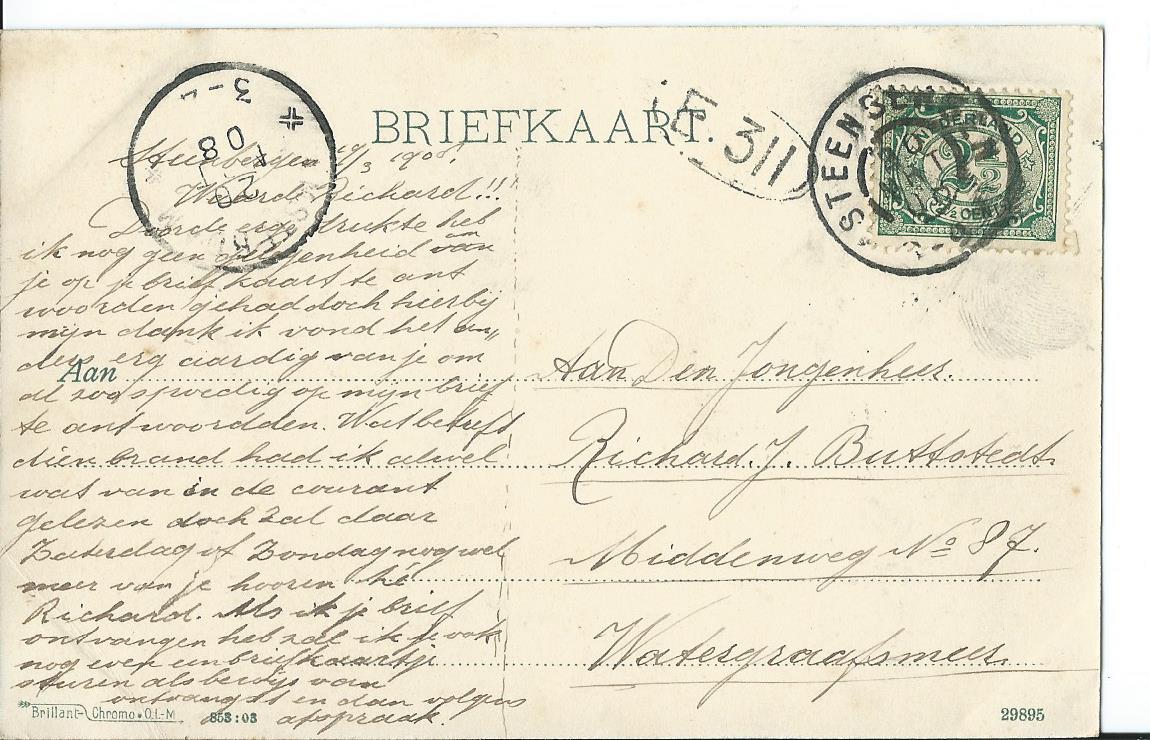 BRIEFKAART.
E 311
STEENBERGEN
NEDERLAND
2½
2½ CENT
3-4
08
Steenbergen 19/3 1908.
Waarde Richard!!!
Door de erge drukte heb
ik nog geen gelegenheid om
van
je op je briefkaart te ant
woorden gehad doch hierbij
mijn dank ik vond het an„
ders erg aardig van je om
al zoo spoedig op mijn brief
te antwoordden. Wat betreft
dien brand had ik alwel
wat van in de courant
gelezen doch zal daar
Zaterdag of Zondag nog wel
meer van je hooren hé
Richard. Als ik je brief
ontvangen heb zal ik je ook
nog even een briefkaartje
sturen als bewijs van
ontvangst en dan volgens
afspraak.
Aan
Aan Den Jongenheer.
Richard. J. Buttstedt.
Middenweg No 87.
Watergraafsmeer.
Brillant-Chromo • O.L-M
853:03
29895